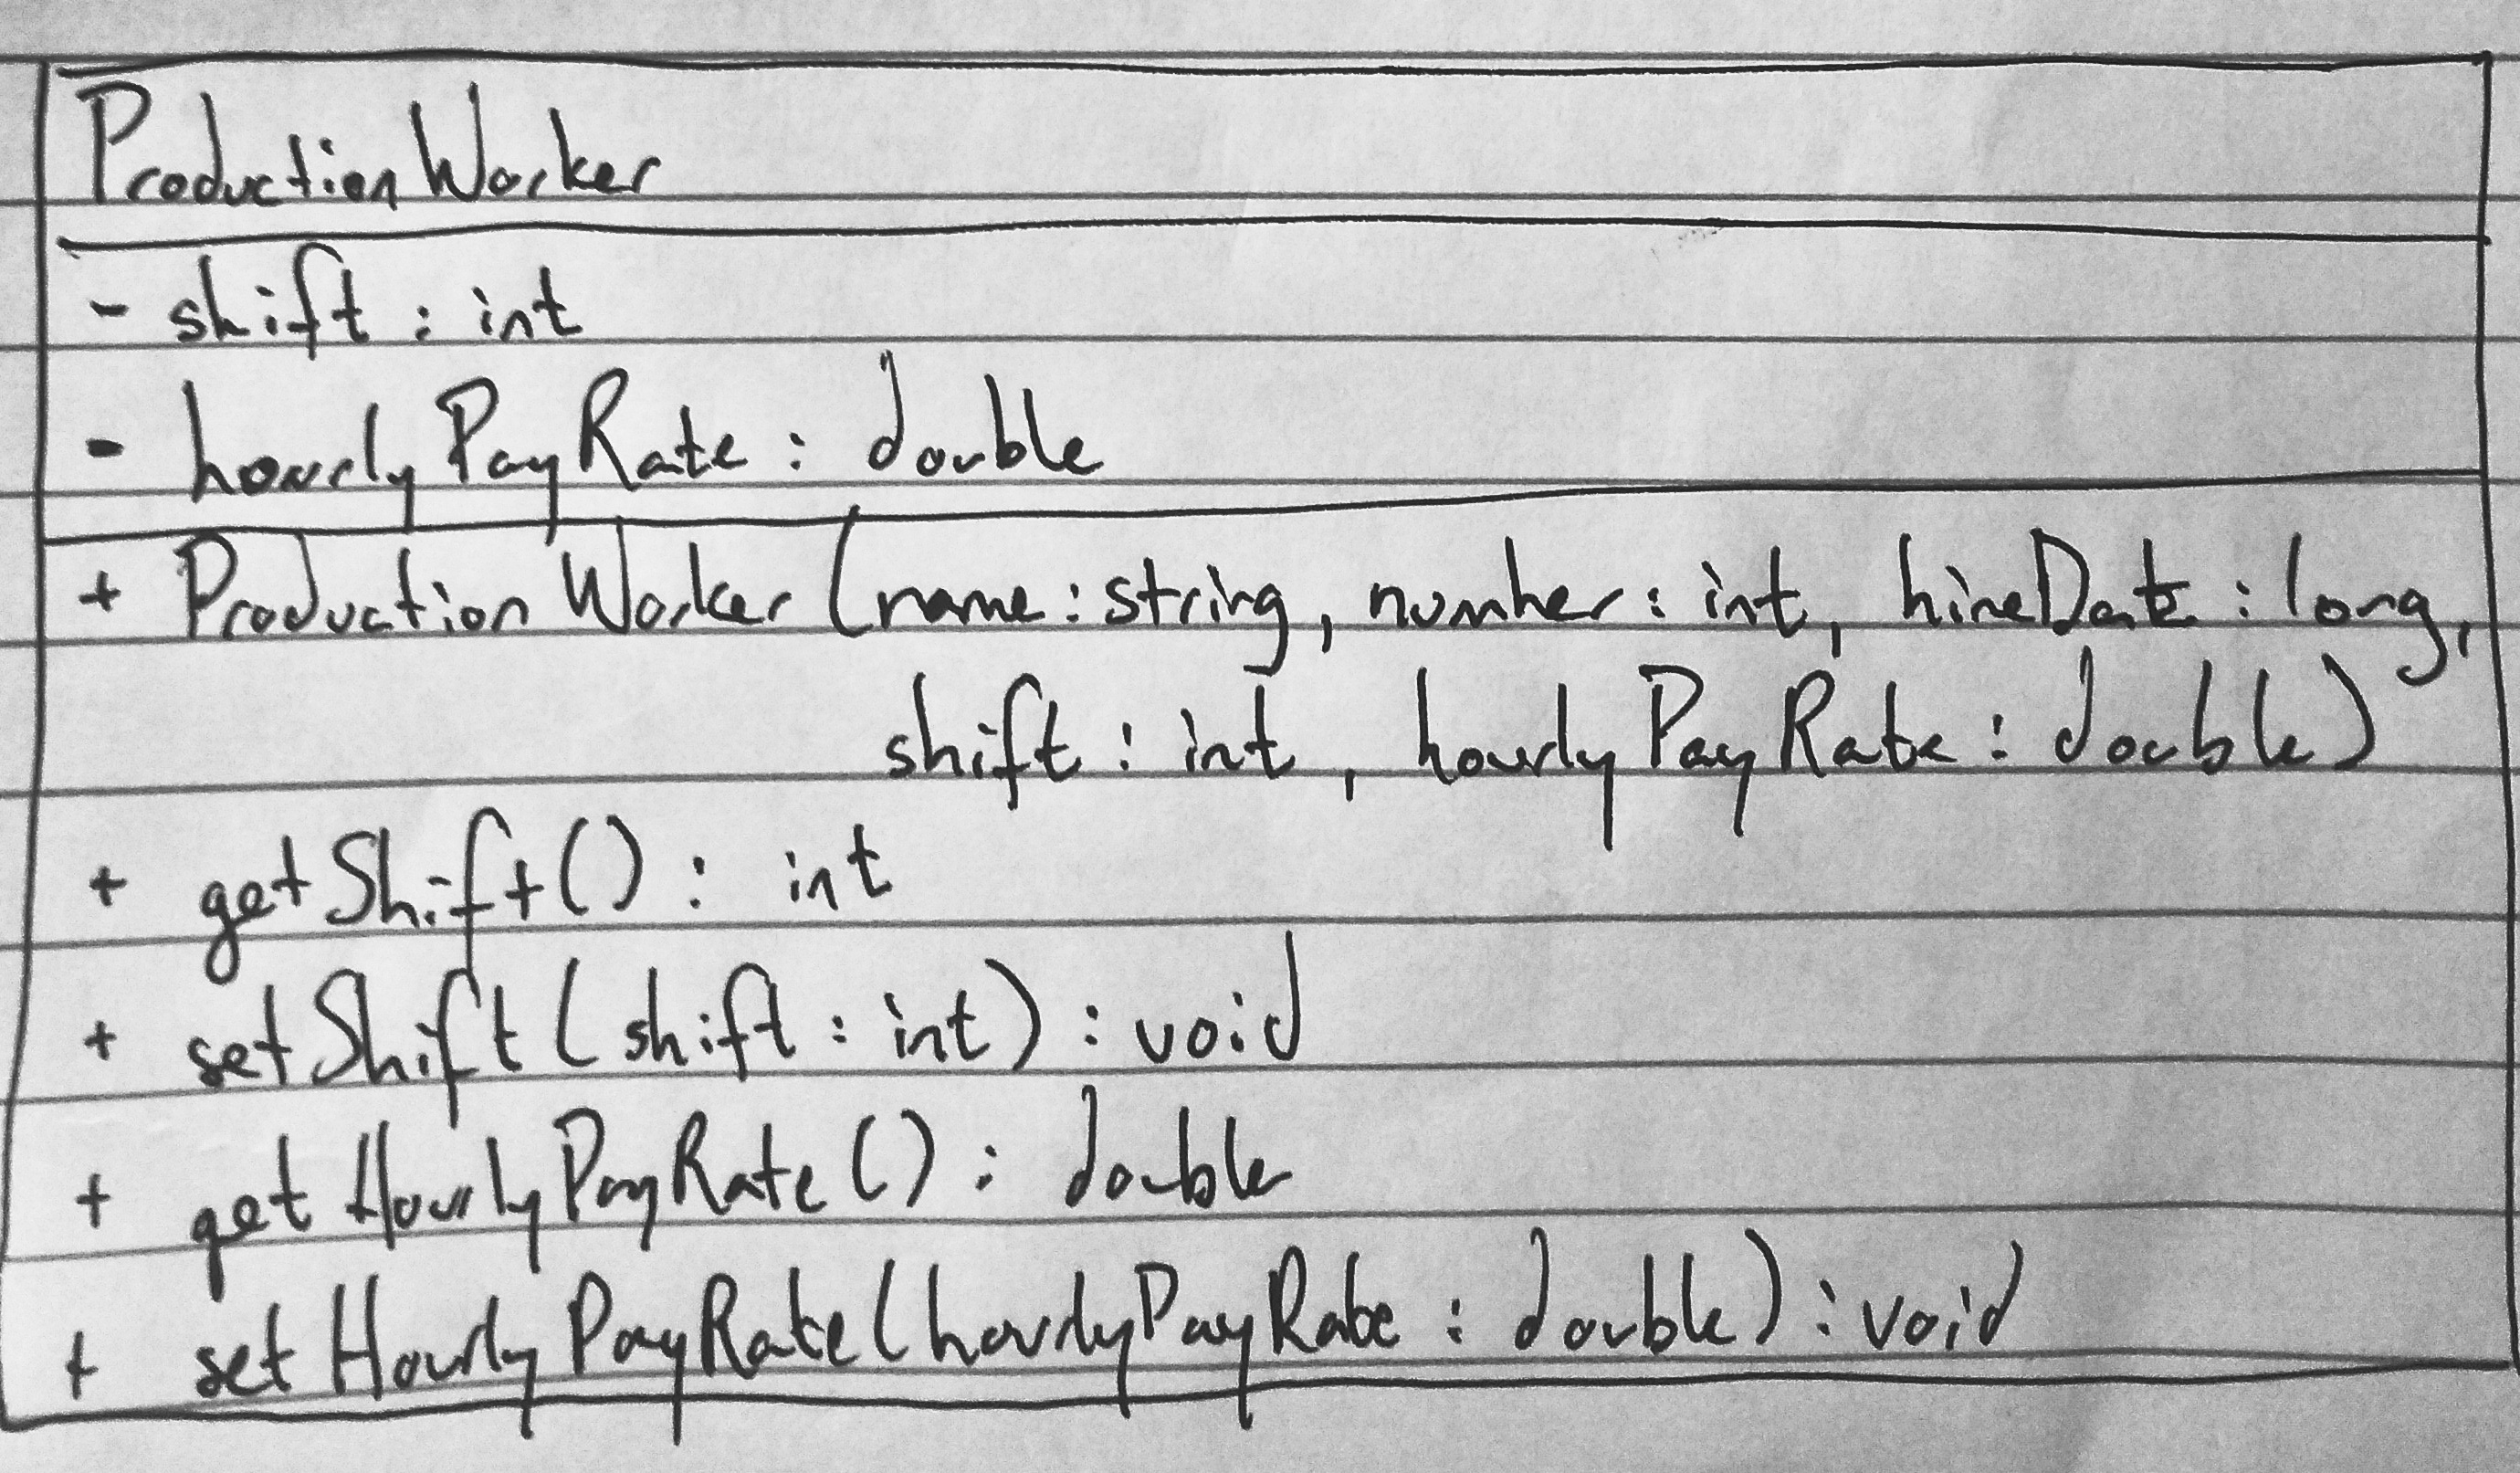 ProductionWorker
- shift : int
- hourlyPayRate : double
+ ProductionWorker (name : string, number : int, hireDate : long,
shift : int, hourlyPayRate : double)
+ getShift() : int
+ setShift (shift : int) : void
+ getHourlyPayRate() : double
+ setHourlyPayRate(hourlyPayRate : double) : void